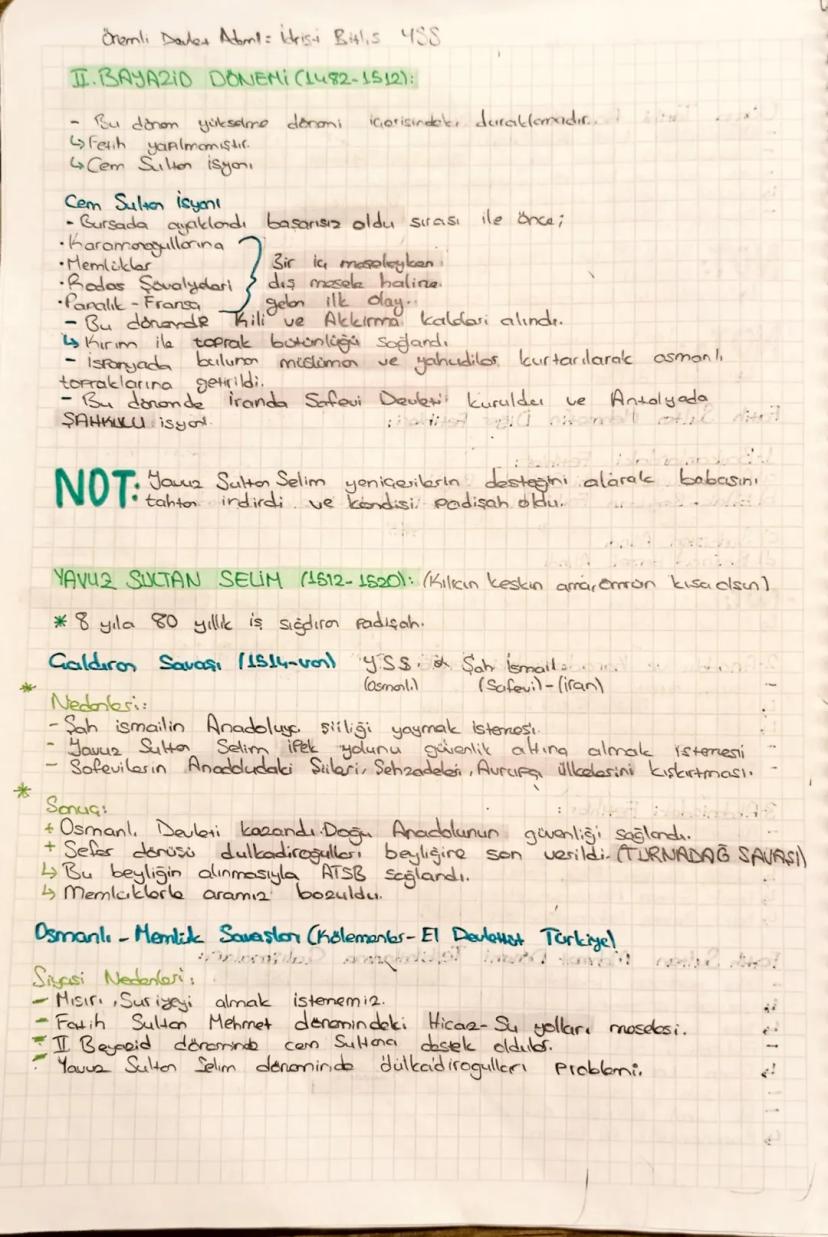 Önemli Devlet Adamı: İdris-i Bitlis YSS
II. BAYAZİD DÖNEMİ (1482-1512):
- Bu dönem yükselme dönemi içerisindeki duraklamadır.
↳ Fetih yapılmamıştır.
↳ Cem Sultan isyanı
Cem Sultan İsyanı
- Bursada ayaklandı başarısız oldu sırası ile önce;
• Karamanoğullarına
• Memlükler
• Rodos Şövalyeleri
• Papalık - Fransa
Bir iç meseleyken
dış mesele haline
gelen ilk olay.
- Bu dönemde Kili ve Akkirman kaleleri alındı.
↳ Kırım ile toprak bütünlüğü sağlandı
- İspanyada bulunan müslüman ve yahudiler kurtarılarak osmanlı
topraklarına getirildi.
- Bu dönemde İranda Safevi Devleti kuruldu ve Antalyada
ŞAHKULU isyanı.
NOT: Yavuz Sultan Selim yeniçerilerin desteğini alarak babasını
tahtan indirdi ve kendisi padişah oldu.
YAVUZ SULTAN SELİM (1512-1520): (Kılıcın keskin ömrün kısa olsun)
* 8 yıla 80 yıllık iş sığdıran padişah.
Çaldıran Savaşı (1514-van) YSS. Şah İsmail
(Osmanlı) (Safevi)-(İran)
* Nedenleri:
- Şah ismailin Anadoluya şiiliği yaymak istemesi
- Yavuz Sultan Selim ipek yolunu güvenlik altına almak istemesi
- Safevilerin Anadoludaki Şiileri, Şehzadeleri, Avrupa ülkelerini kışkırtması.
* Sonuç:
+ Osmanlı Devleti kazandı. Doğu Anadolunun güvenliği sağlandı.
+ Sefer dönüşü dulkadiroğulları beyliğine son verildi. (TURNADAĞ SAVAŞI)
↳ Bu beyliğin alınmasıyla ATSB sağlandı.
↳ Memlüklerle aramız bozuldu.
Osmanlı - Memlük Savaşları (Kölemenler- El Devletüt Türkiye)
Siyasi Nedenleri:
- Mısırı, Suriyeyi almak istememiz.
- Fatih Sultan Mehmet dönemindeki Hicaz-Su yolları meselesi.
- II Beyazid döneminde cem Sultana destek oldular.
- Yavuz Sultan Selim döneminde dülkadirogulları problemi.